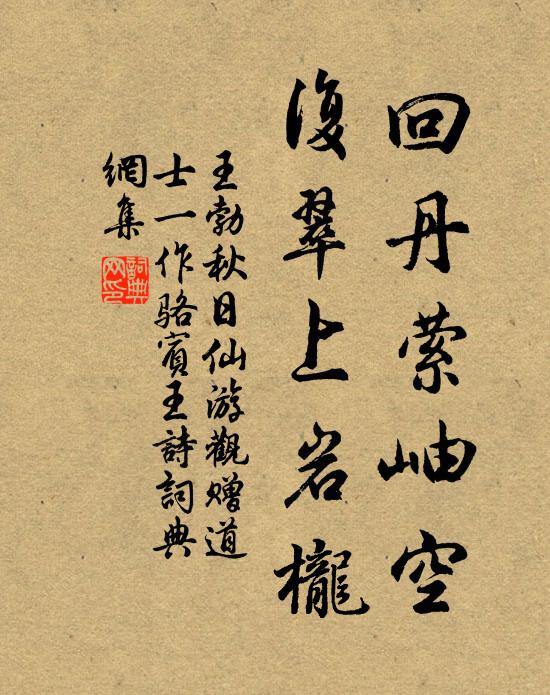 回丹萦岫空
復翠上岩櫳
王勃秋日仙游觀贈道
士一作駱賓王詩詞典
網集
詞典
网印